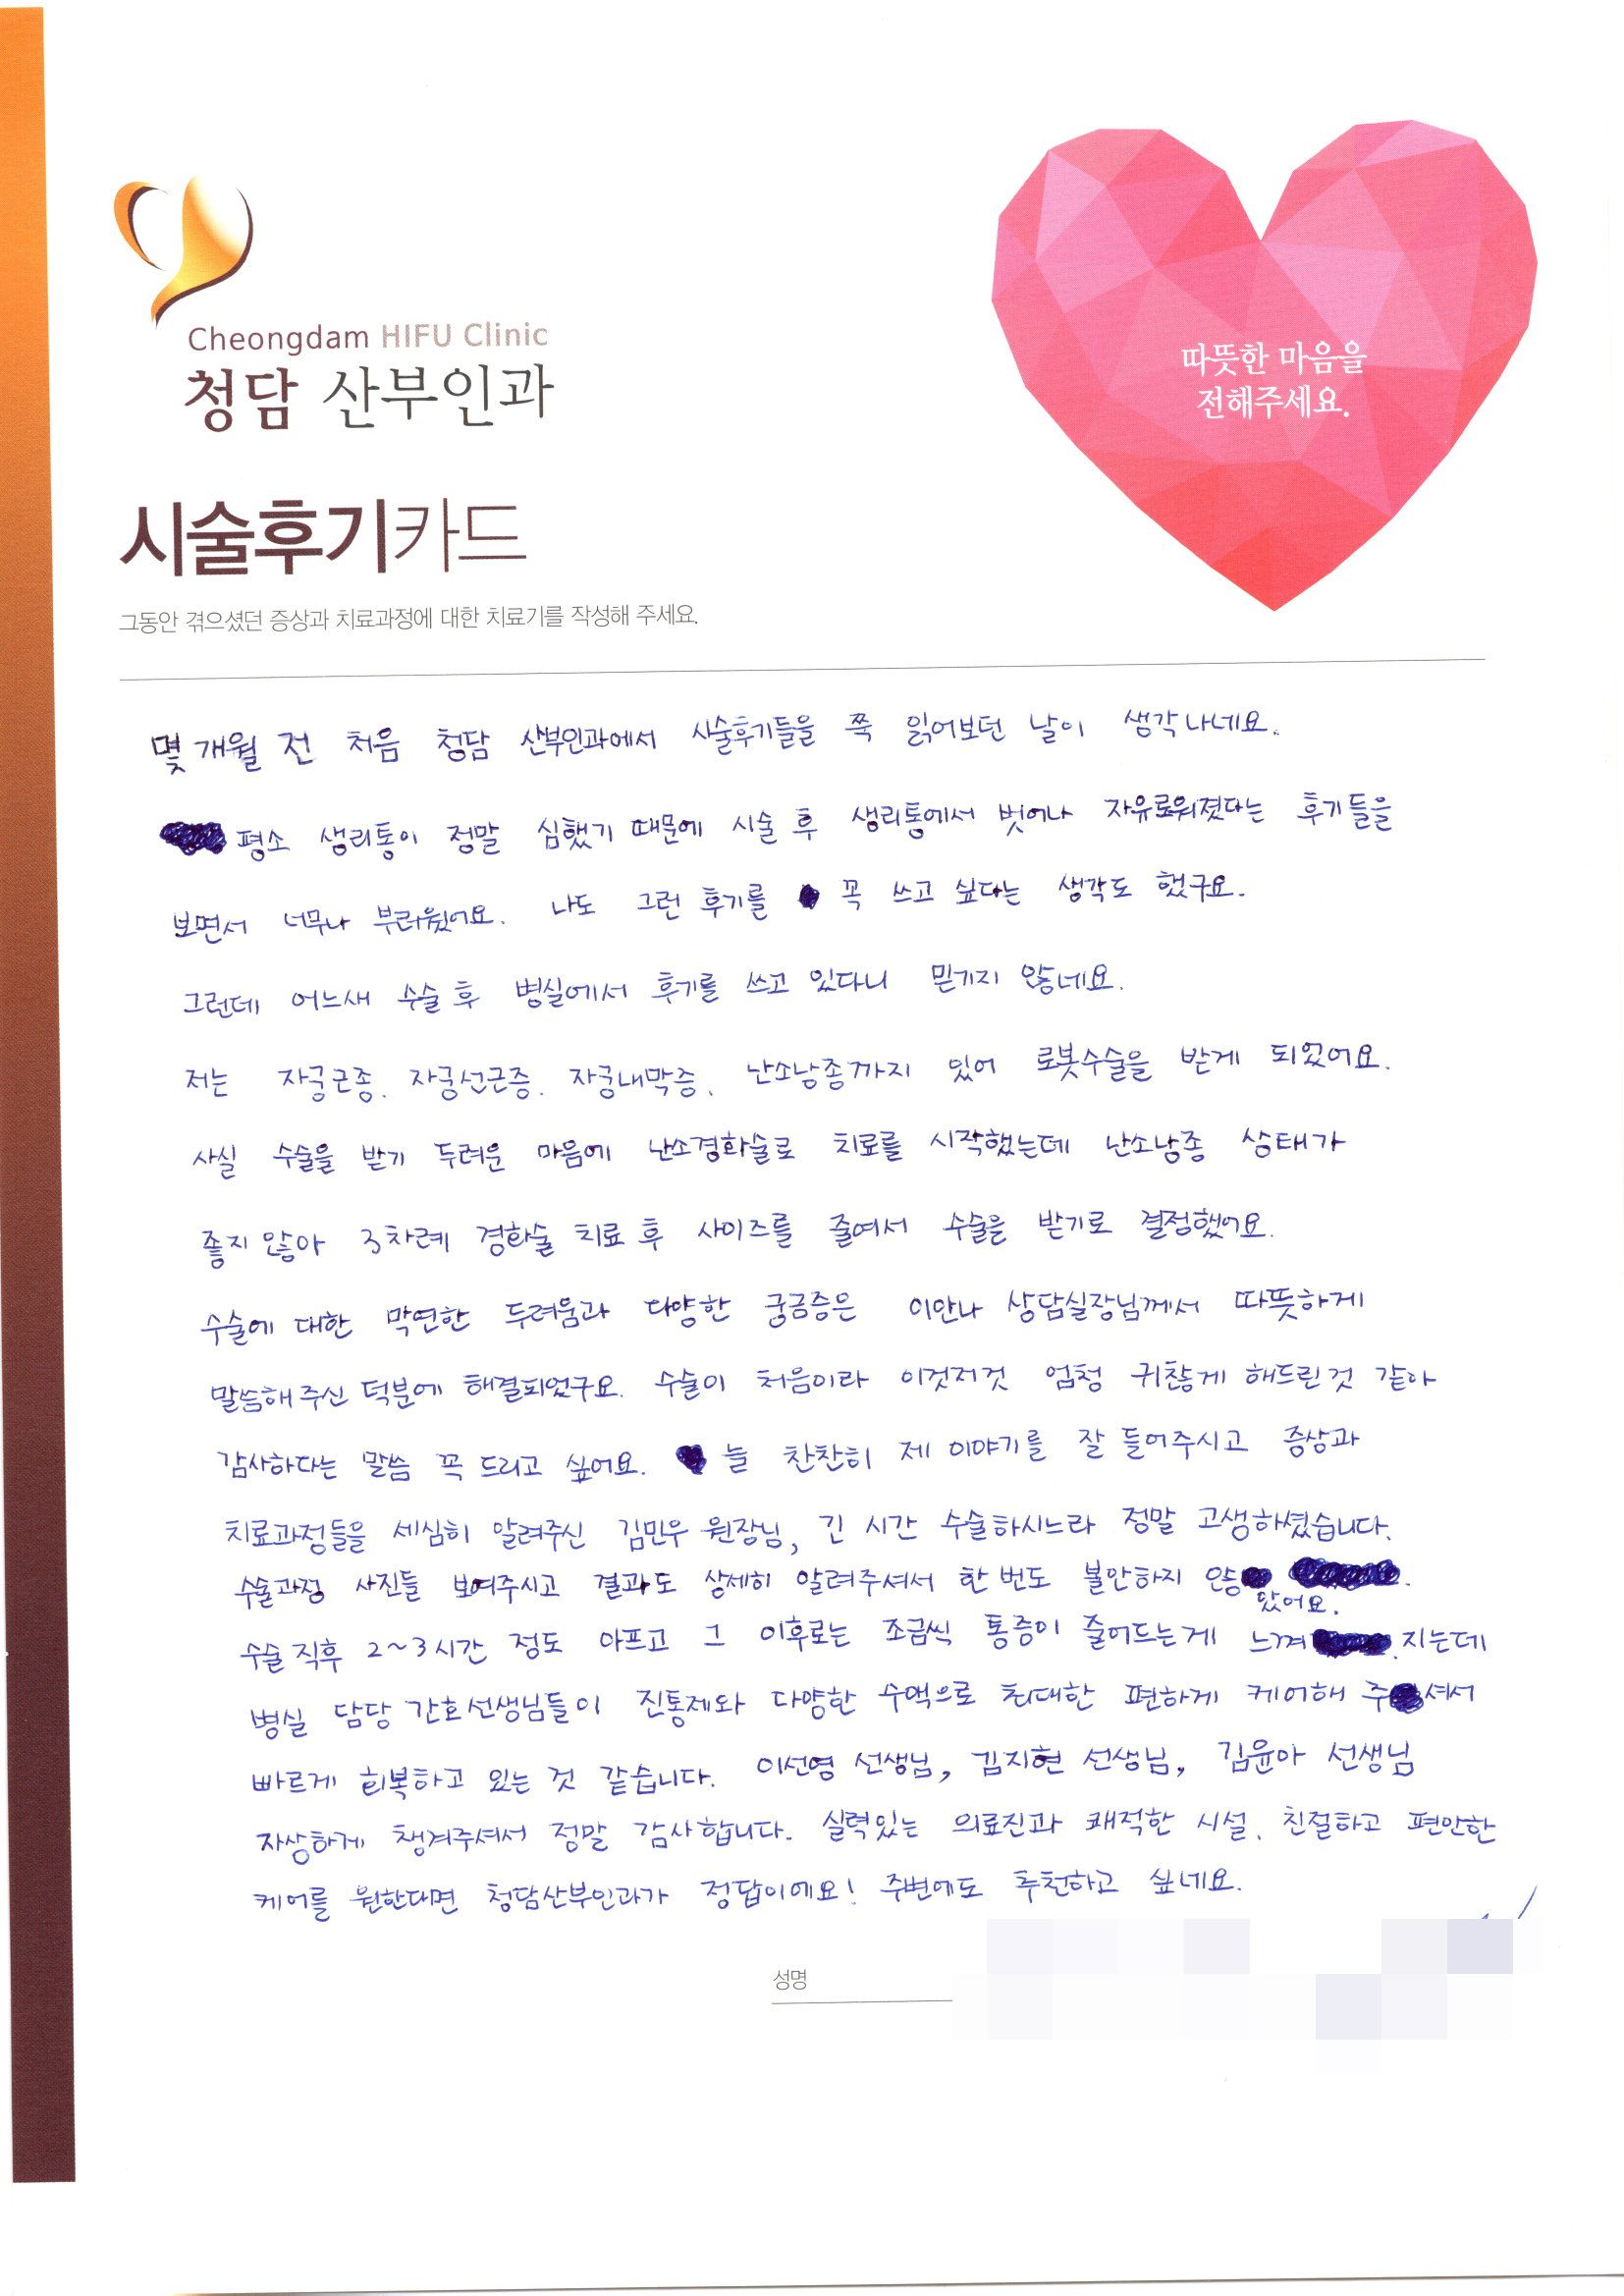 Cheongdam HIFU Clinic
청담 산부인과
따뜻한 마음을
전해주세요.
시술후기카드
그동안 겪으셨던 증상과 치료과정에 대한 치료기를 작성해 주세요.
몇 개월 전 처음 청담 산부인과에서 시술후기들을 쭉 읽어보던 날이 생각나네요.
평소 생리통이 정말 심했기 때문에 시술 후 생리통에서 벗어나 자유로워졌다는 후기들을
보면서 너무나 부러웠어요. 나도 그런 후기를 꼭 쓰고 싶다는 생각도 했구요.
그런데 어느새 수술 후 병실에서 후기를 쓰고 있다니 믿기지 않네요.
저는 자궁근종, 자궁선근증, 자궁내막증, 난소낭종까지 있어 로봇수술을 받게 되었어요.
사실 수술을 받기 두려운 마음에 난소경화술로 치료를 시작했는데 난소낭종 상태가
좋지 않아 3차례 경화술 치료 후 사이즈를 줄여서 수술을 받기로 결정했어요.
수술에 대한 막연한 두려움과 다양한 궁금증은 이안나 상담실장님께서 따뜻하게
말씀해주신 덕분에 해결되었구요. 수술이 처음이라 이것저것 엄청 귀찮게 해드린것 같아
감사하다는 말씀 꼭 드리고 싶어요. 늘 찬찬히 제 이야기를 잘 들어주시고 증상과
치료과정들을 세심히 알려주신 김민우 원장님, 긴 시간 수술하시느라 정말 고생하셨습니다.
수술과정 사진들 보여주시고 결과도 상세히 알려주셔서 한 번도 불안하지 않
았어요.
수술 직후 2~3시간 정도 아프고 그 이후로는 조금씩 통증이 줄어드는게 느껴지는데
병실 담당 간호선생님들이 진통제와 다양한 수액으로 최대한 편하게 케어해 주셔서
빠르게 회복하고 있는 것 같습니다. 이선영 선생님, 김지현 선생님, 김윤아 선생님
자상하게 챙겨주셔서 정말 감사합니다. 실력있는 의료진과 쾌적한 시설, 친절하고 편안한
케어를 원한다면 청담산부인과가 정답이에요! 주변에도 추천하고 싶네요.
성명